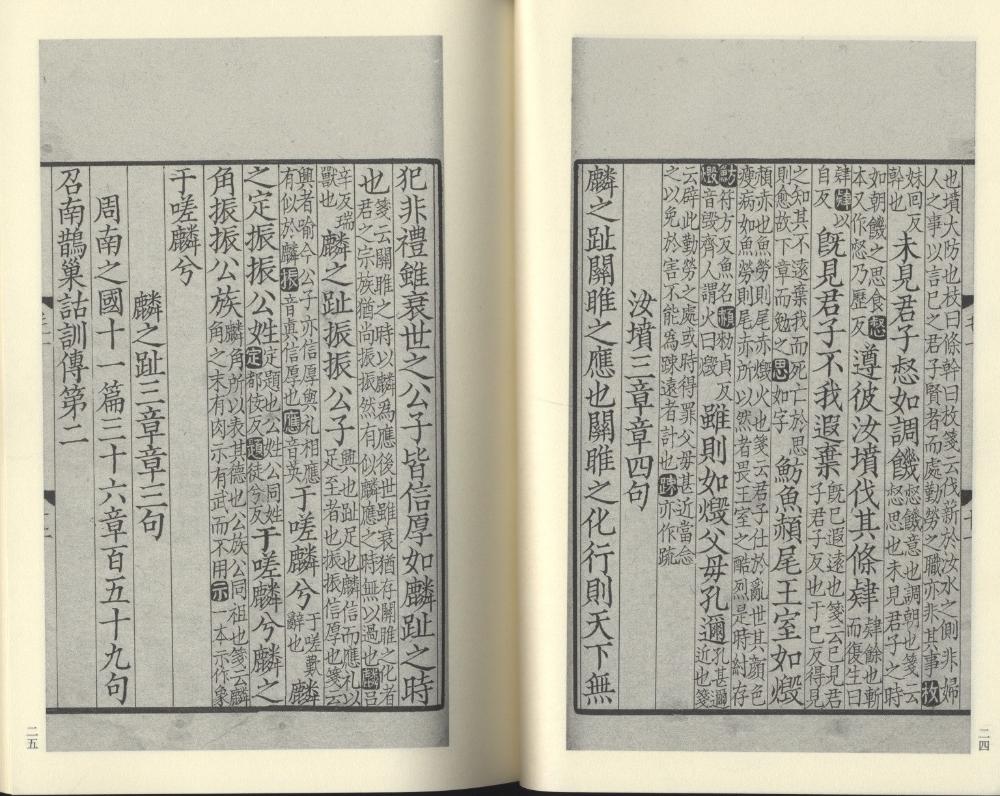 也墳大防也枝曰條榦曰枚箋云伐薪於汝水之側非婦
人之事以言己之君子賢者而處勤勞之職亦非其事枚
妹回反
榦也
未見君子惄如調饑
惄饑意也調朝也箋云
惄思也未見君子之時
如朝饑之思食惄
本又作㥾乃歷反
遵彼汝墳伐其條肄
肄餘也斬
而復生曰
肄肄以
自反
既見君子不我遐棄
既已遐遠也箋云已見君
子君子反也于已反得見
之知其不遠棄我而死亡於思
則愈故下章而勉之思如字
魴魚赬尾王室如燬
赬赤也魚勞則尾赤燬火也箋云君子仕於亂世其顏色
瘦病如魚勞則尾赤所以然者畏王室之酷烈是時紂存
魴符方反魚名赬勑貞反
燬音毀齊人謂火曰燬
雖則如燬父母孔邇
孔甚邇
近也箋
云辟此勤勞之處或時得罪父母甚近當念
之以免於害不能為踈遠者計也踈亦作疏
汝墳三章章四句
麟之趾關雎之應也關雎之化行則天下無
二四
犯非禮雖衰世之公子皆信厚如麟趾之時
也
箋云關雎之時以麟為應後世雖衰猶存關雎之化者
君之宗族猶尚振振然有似麟應之時無以過也麟呂
辛反瑞
獸也
麟之趾振振公子
興也趾足也麟信而應礼以
足至者也振振信厚也箋云
興者喻今公子亦信厚與礼相應
有似於麟振音真信厚也應音
于嗟麟兮
于嗟歎
辭也
麟
之定振振公姓
定題也公姓公同姓
定都佞反題徒兮反
于嗟麟兮麟之
角振振公族
麟角所以表其德也公族公同祖也箋云麟
角之末有肉示有武而不用示一本示作象
于嗟麟兮
麟之趾三章章三句
周南之國十一篇三十六章百五十九句
召南鵲巢詁訓傳第二
二五